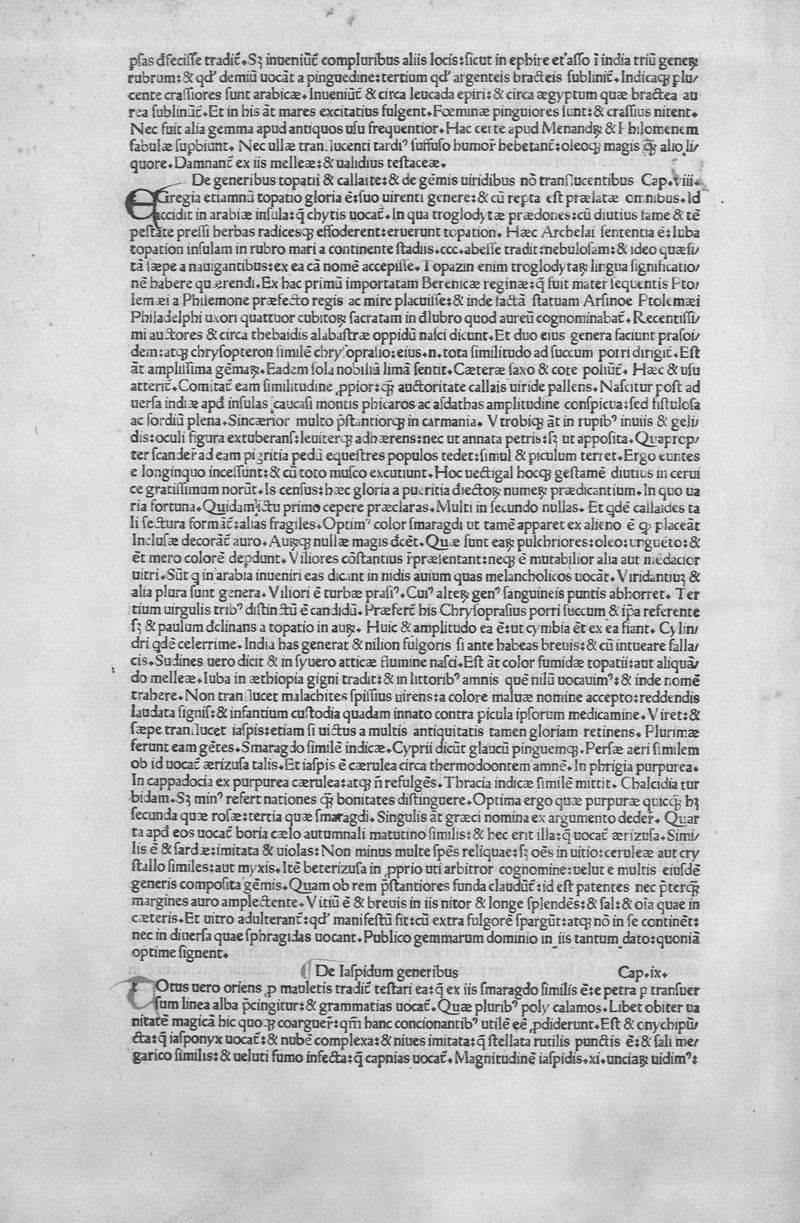 psas defecisse tradit᷒.Sꝫ inueniūt᷒ compluribus aliis locis:sicut in ephire et'asso ī india triū generꝝ
rubrum:& qd' demiū uocāt a pinguedine:tertium qd' argenteis bracteis sublinit᷒.Indicaqꝫ plu/
cente crassiores sunt arabicæ.Inueniūt᷒ & circa leucada epiri:& circa ægyptum quæ bractea au
rea sublinūt᷒.Et in his āt mares excitatius fulgent.Fœminæ pinguiores sunt:& crassius nitent.
Nec fuit alia gemma apud antiquos usu frequentior.Hac certe apud Menandꝝ & Philomenem
fabulæ supbiunt.Nec ullæ translucenti tardi⁹ suffuso humor᷒ hebetant᷒:oleoqꝫ magis qꝫ alio li/
quore.Damnant᷒ ex iis melleæ:& ualidius testaceæ.
De generibus topatii & callaite:& de gēmis uiridibus nō translucentibus Cap.viii.
EGregia etiamnū topatio gloria ē:suo uirenti genere:& cū repta est prælatæ omnibus.Id
accidit in arabiæ insula:q̄ chytis uocat᷒.In qua troglodytæ prædones:cū diutius fame & tē
pestate pressi herbas radicesqꝫ effoderent:eruerunt topation.Hæc Archelai sententia ē:Iuba
topation insulam in rubro mari a continente stadiis.ccc.abesse tradit:nebulosam:& ideo quæsi/
tā sæpe a nauigantibus:ex ea cā nomē accepisse.Topazin enim troglodytaꝝ lingua significatio/
nē habere quærendi.Ex hac primū importatam Berenicæ reginæ:q̄ fuit mater sequentis Pto/
lemæi a Philemone præfecto regis ac mire placuisse:& inde factā statuam Arsinoe Ptolemæi
Philadelphi uxori quattuor cubitoꝝ sacratam in dlubro quod aureū cognominabat᷒.Recentissi/
mi auctores & circa thebaidis alabastræ oppidū nasci dicunt.Et duo eius genera faciunt prasoi/
dem:atqꝫ chrysopteron similē chrysopraſio:eius.n.tota similitudo ad succum porri dirigit᷒.Est
āt amplissima gēmaꝝ.Eadem sola nobiliū limā sentit.Cæteræ saxo & cote poliūt᷒.Hæc & usu
atterit᷒.Comitat᷒ eam similitudine ꝓpior:qꝫ auctoritate callais uiride pallens.Nascitur post ad
uersa indiæ apd insulas caucasi montis phicaros ac asdathas amplitudine conspicua:sed fistulosa
ac sordiū plena.Sincærior multo p̄stantiorqꝫ in carmania.Vtrobiqꝫ āt in rupib⁹ inuiis & geli/
dis:oculi figura extuberans:leuiterqꝫ adhærens:nec ut annata petris:sꝫ ut apposita.Quaprop/
ter scander᷒ ad eam pigritia pedū equestres populos tedet:simul & piculum terret.Ergo euntes
e longinquo incessunt:& cū toto musco excutiunt.Hoc uectigal hocqꝫ gestamē diutius in cerui
ce gratissimum norūt.Is census:hæc gloria a pueritia diectoꝝ numeꝝ prædicantium.In quo ua
ria fortuna.Quidam ictu primo cepere præclaras.Multi in secundo nullas.Et qdē callaides ta
li sectura formāt᷒:alias fragiles.Optim⁹ color smaragdi ut tamē apparet ex alieno ē qꝫ placeāt
Inclusæ decorāt᷒ auro.Auꝝqꝫ nullæ magis dcēt.Quæ sunt eaꝝ pulchriores:oleo:ungueto:&
ēt mero colorē depdunt.Viliores cōstantius r̄præsentant:neqꝫ ē mutabilior alia aut mēdacior
uitri.Sūt q in arabia inueniri eas dicant in nidis auium quas melancholicos uocāt.Viridantiuꝫ &
alia plura sunt genera.Viliori ē turbæ prasi⁹.Cui⁹ alteꝝ gen⁹ sanguineis puntis abhorret.Ter
tium uirgulis trib⁹ distinctū ē candidū.Præfert᷒ his Chrysoprasius porri succum & ip̄a referente
sꝫ & paulum dclinans a topatio in auꝝ.Huic & amplitudo ea ē:ut cymbia ēt ex ea fiant.Cylin/
dri qdē celerrime.India has generat & nilion fulgoris si ante habeas breuis:& cū intueare falla/
cis.Sudines uero dicit & in syuero atticæ flumine nasci.Est āt color fumidæ topatii:aut aliquā/
do melleæ.Iuba in æthiopia gigni tradit:& in littorib⁹ amnis quē nilū uocauim⁹:& inde nomē
trahere.Non translucet malachites spissius uirens:a colore maluæ nomine accepto:reddendis
laudata signis:& infantium custodia quadam innato contra picula ipsorum medicamine.Viret:&
sæpe translucet iaspis:etiam si uictus a multis antiquitatis tamen gloriam retinens.Plurimæ
ferunt eam gētes.Smaragdo similē indicæ.Cyprii dicūt glaucū pinguemqꝫ.Persæ aeri similem
ob id uocat᷒ ærizusa talis.Et iaspis ē cærulea circa thermodoontem amnē.In phrigia purpurea.
In cappadocia ex purpurea cærulea:atqꝫ n̄ refulgēs.Thracia indicæ similē mittit.Chalcidia tur
bidam.Sꝫ min⁹ refert nationes qꝫ bonitates distinguere.Optima ergo quæ purpuræ quicqꝫ hꝫ
secunda quæ rosæ:tertia quæ smaragdi.Singulis āt græci nomina ex argumento deder᷒.Quar
ta apd eos uocat᷒ boria cælo autumnali matutino similis:& hec erit illa:q̄ uocat᷒ ærizusa.Simi/
lis ē & sardæ:imitata & uiolas:Non minus multe spēs reliquae:sꝫ oēs in uitio:ceruleæ aut cry
stallo similes:aut myxis.Itē beterizusa in ꝓprio uti arbitror cognomine:uelut e multis eiusdē
generis composita gēmis.Quam ob rem p̄stantiores funda claudūt᷒:id est patentes nec p̄terqꝫ
margines auro amplectente.Vitiū ē & breuis in iis nitor & longe splendēs:& sal:& oīa quae in
cæteris.Et uitro adulterant᷒:qd' manifestū fit:cū extra fulgorē spargūt:atqꝫ nō in se continēt:
nec in diuersa quae sphragidas uocant.Publico gemmarum dominio in iis tantum dato:quoniā
optime signent.
De Iaspidum generibus Cap.ix.
TOtus uero oriens ꝓ mauletis tradit᷒ testari ea:q̄ ex iis smaragdo similis ē:e petra p transuer
sum linea alba p̄cingitur:& grammatias uocat᷒.Quæ plurib⁹ poly calamos.Libet obiter ua
nitatē magicā hic quoqꝫ coarguer᷒:qm̄ hanc concionantib⁹ utilē eē ꝓdiderunt.Est & onychipū/
cta:q̄ iasponyx uocat᷒:& nubē complexa:& niues imitata:q̄ stellata rutilis punctis ē:& sali me/
garico similis:& ueluti fumo infecta:q̄ capnias uocat᷒.Magnitudinē iaspidis.xi.unciaꝝ uidim⁹: